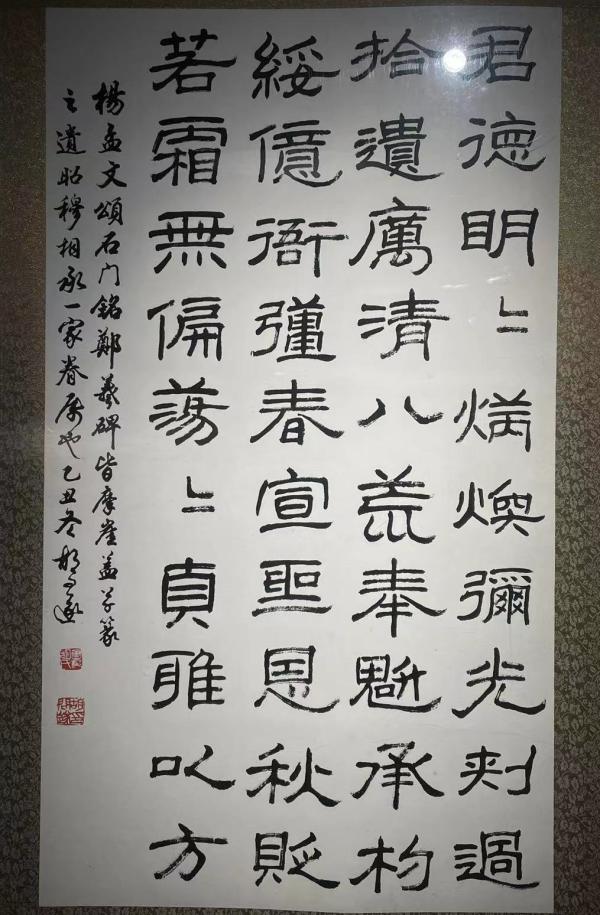 君德明〻炳煥彌光刺過
拾遺厲清八荒奉魁承杓
綏億衙彊春宣聖恩秋貶
若霜無偏蕩〻貞雅以方
楊孟文頌石门銘鄭羲碑皆摩崖蓋分篆
之遺昭穆相承一家眷属也乙丑冬胡问遂